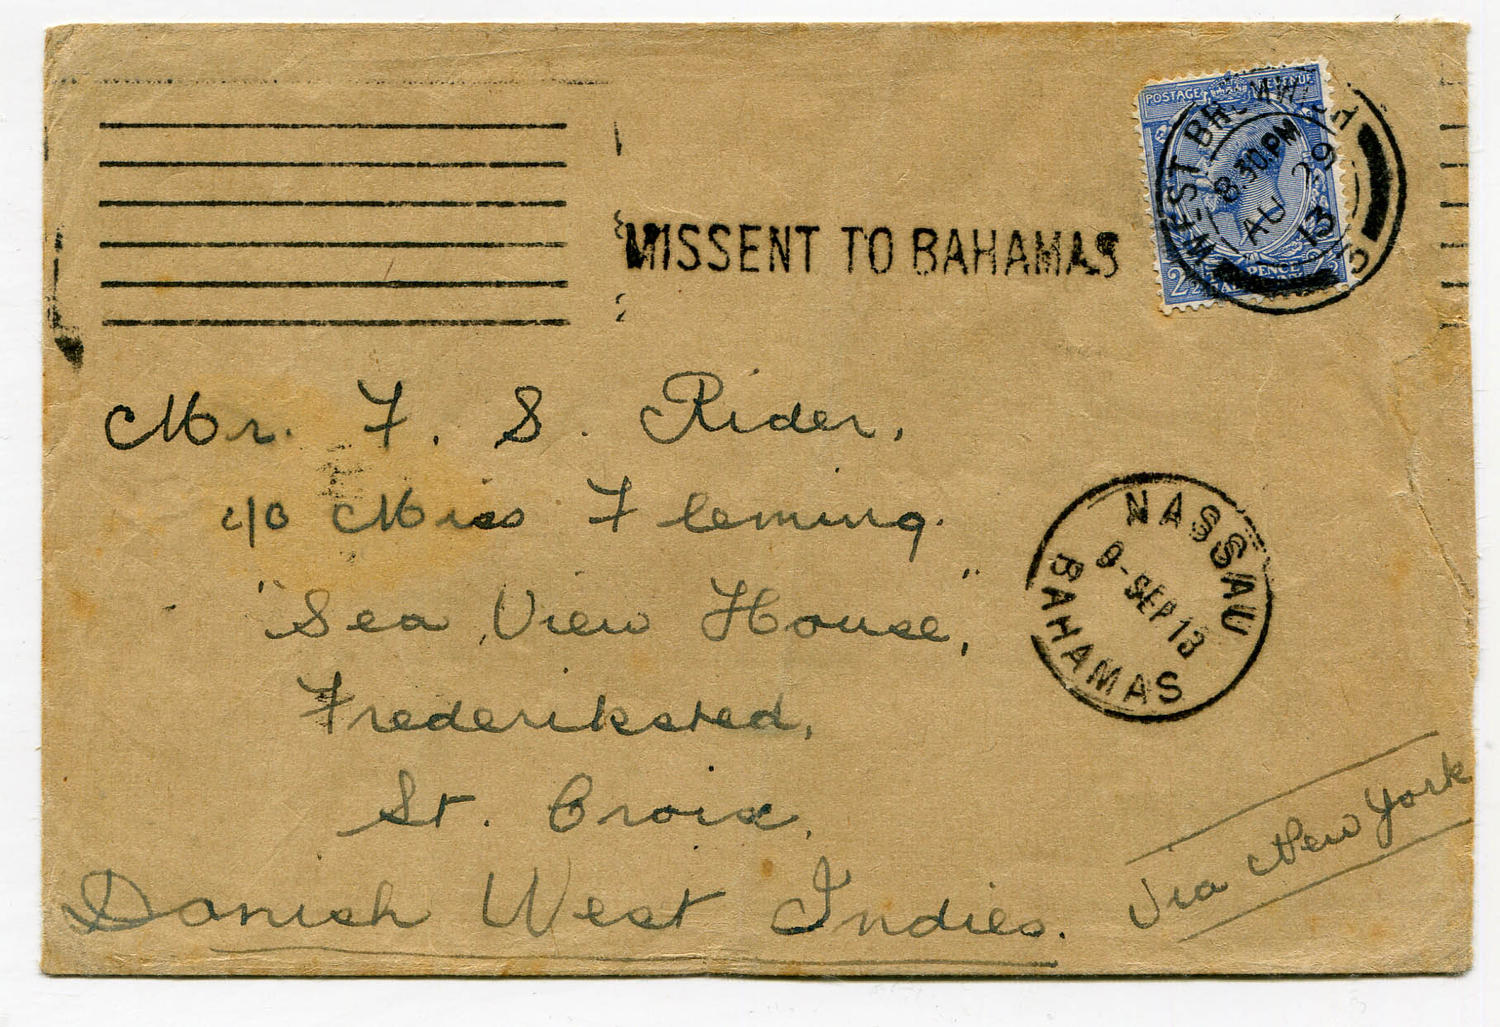 POSTAGE REVENUE
WEST BROMWICH
8.30.PM
AU 29
13
2½ PENCE 2½
MISSENT TO BAHAMAS
Mr. F. S. Rider,
c/o Miss Fleming.
"Sea View House,"
Frederiksted,
St. Croix,
Danish West Indies.
Via New York
NASSAU
9-SEP 13
BAHAMAS